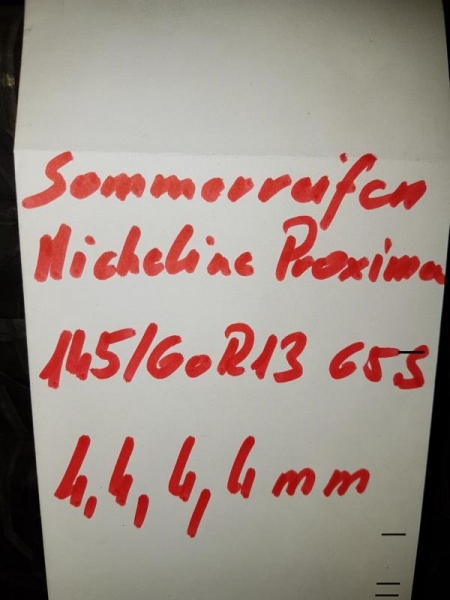 Sommerreifen
Micheline Proxima
145/60R13 65S
4,4, 4,4 mm